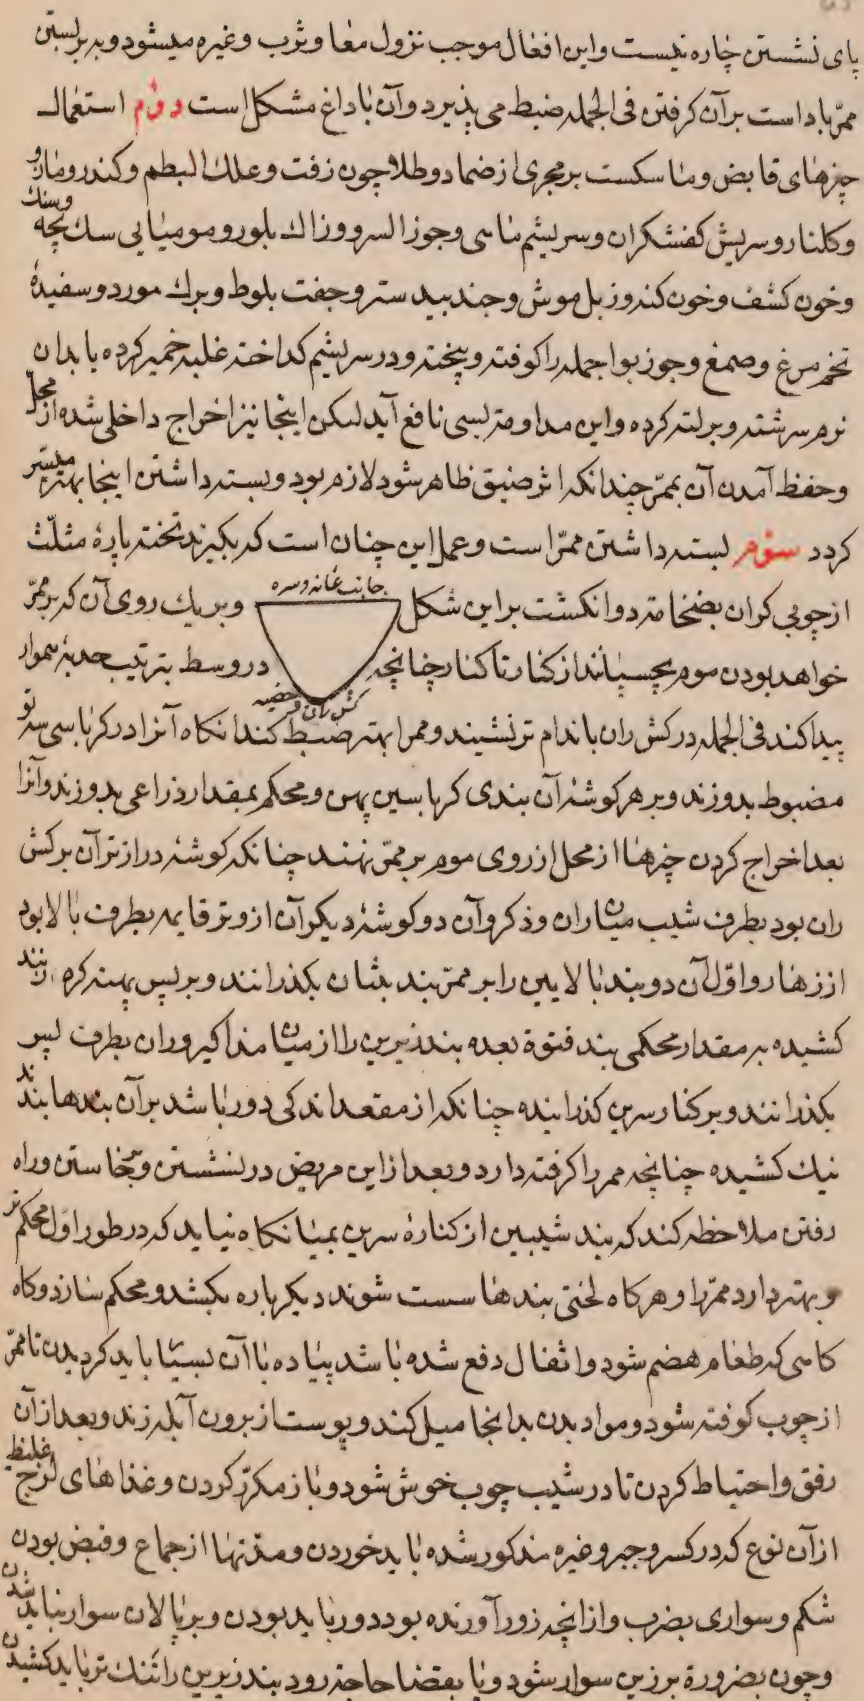 پای نشستن چاره نیست و این افعال موجب نزول معا و ثرب و غیره میشود و به بر بستن
ممرّ باد است بر آن کرفتن فی الجمله ضبط می پذیرد و آن با داغ مشکل است دوّم استعمال
چیزهای قابض و ماسکست بر مجری از ضماد و طلا چون زفت و علك البطم و کندر و مازو
و کلنار و سریش کفشکران و سریشم ماهی و جوز السرو و زاك بلور و مومیایی سك بچه
و سنك
و خون کشف و خون کندر و زبل موش و جندبیدستر و جفت بلوط و برك مورد و سفیدهٔ
تخم مرغ و صمغ و جوز بوا جمله را کوفته و پخته و در سریشم کداخته غلبه خمیر کرده یا بدان
نرم سرشته و بر لته کرده و این مداومتر بسی نافع آید لیکن اینجا نیز اخراج داخلی شده از محلّ
و حفظ آمدن آن بممرّ چندانکه اثر ضیق ظاهر شود لازم بود و بسته داشتن اینجا بهتر میسّر
کردد سوّم بسته داشتن ممرّ است و عمل این چنان است که بکیرند تخته پارهٔ مثلّث
از چوبی کران بضخامة دو انکشت بر این شکل
جانب عانه و سره
و بر یك روی آن که بر ممرّ
خواهد بودن موم بچسپانند از کنار تا کنار چنانچه
در وسط بترتیب حدبهٔ هموار
کش ران و خصیه
پیدا کند فی الجمله در کش ران باندام تر نشیند و ممر را بهتر ضبط کند انکاه آنرا در کرباسی سه تو
مضبوط بدوزند و بر هر کوشهٔ آن بندی کرباسین پهن و محکم بمقدار ذراعی بدوزند و آنرا
بعد اخراج کردن چیزها از محل از روی موم بر ممرّ نهند چنانکه کوشهٔ درازتر آن بر کش
ران بود بطرف شیب میان ران و ذکر و آن دو کوشهٔ دیکر آن از وتر قایمه بطرف بالا بود
از زهار و اوّل آن دو بند بالایین را بر ممرّ بند بشان بکذرانند و بر پس پهت کره زنند
کشیده به مقدار محکمی بند فتوة بعده بند زیرین را از میان مذاکیر و ران بطرف پس
بکذرانند و بر کنار سرین کذرانیده چنانکه از مقعد اندکی دور باشد بر آن بندها بندند
نیك کشیده چنانچه ممر را کرفته دارد و بعد از این مریض در نشستن و برخاستن و راه
رفتن ملاحظه کند که بند شیبین از کنارهٔ سرین بمیانکاه نیاید که در طور اوّل محکم تر
و بهتر دارد ممرّ را و هر کاه لختی بندها سست شوند دیکر باره بکشد و محکم سازد و کاه
کاهی که طعام هضم شود و اثفال دفع شده باشد پیاده با آن بسیار باید کردیدن تا ممرّ
از چوب کوفته شود و مواد بدن بدانجا میل کند و پوست از برون آبله زند و بعد از آن
رفق و احتیاط کردن تا در شیب چوب خوش شود و باز مکرّر کردن و غذاهای لزج غلیظ
از آن نوع که در کسر و جبر و غیره مذکور شده باید خوردن و مدّتها از جماع و قبض بودن
شکم و سواری بضرب و از انچه زور آورنده بود دور باید بودن و بر پالان سوار نباید شدن
و چون بضرورة بر زین سوار شود و یا بقضا حاجة رود بند زیرین را تنك تر باید کشیدن